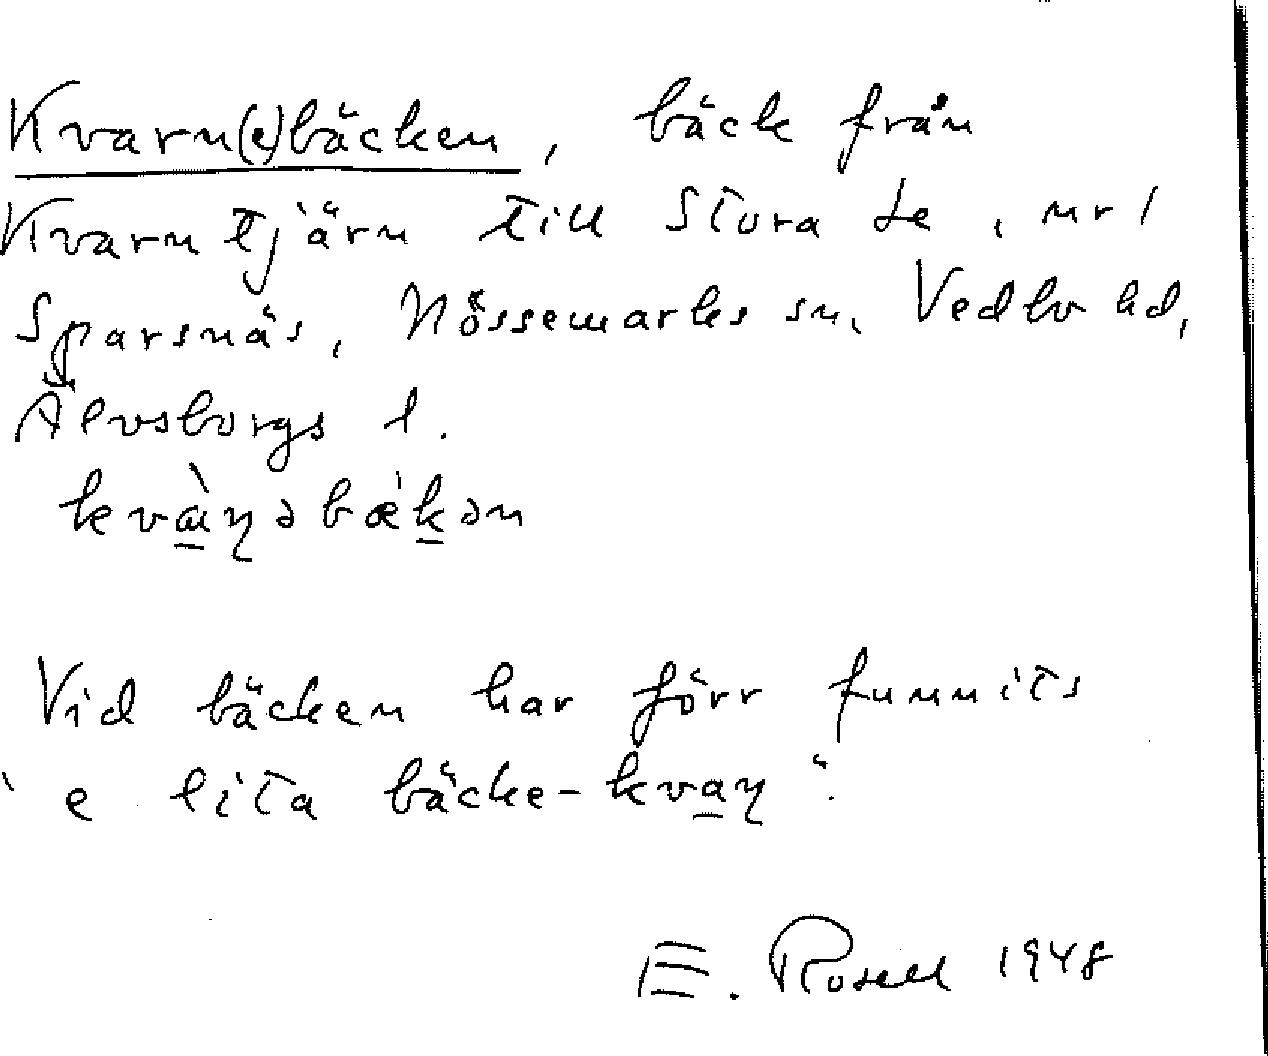 Kvarn(e)bäcken, bäck från
Kvarntjärn till Stora Le, nr 1
Sparsnäs, Nössemarks sn, Vedbo hd,
Älvsborgs l.
kvàɳəbækən
Vid bäcken har förr funnits
"e lita bäcke-kvaɳ".
E. Rosell 1948